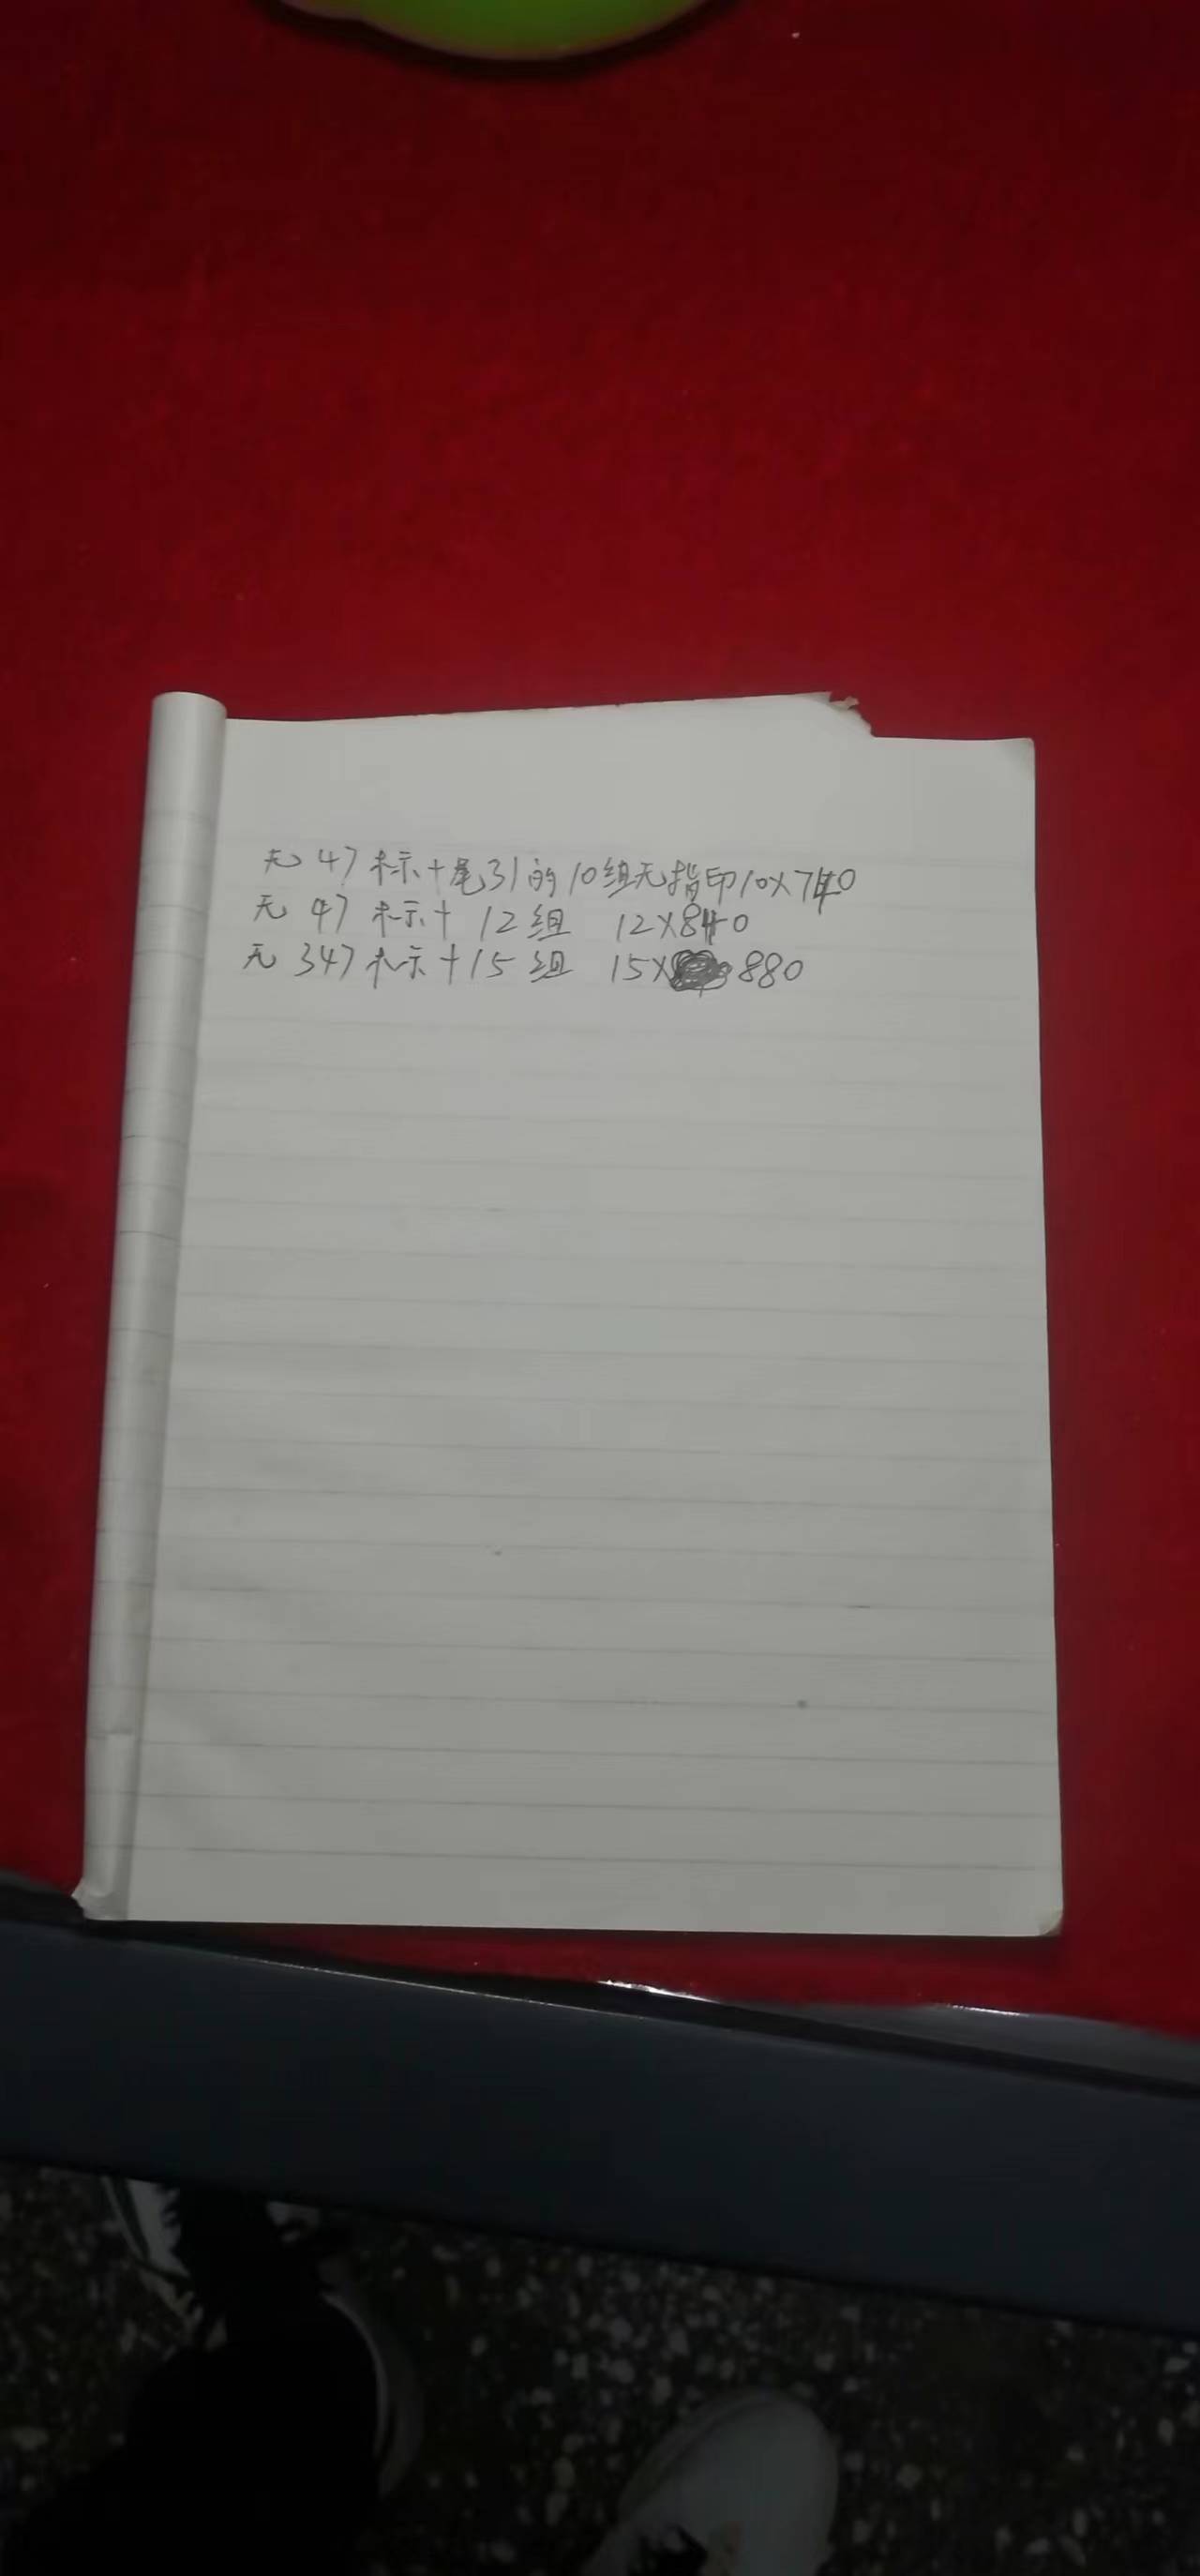 无 47 标十尾31的10组无指印10×740
无 47 标十 12组 12×840
无 347标十15组 15× 880